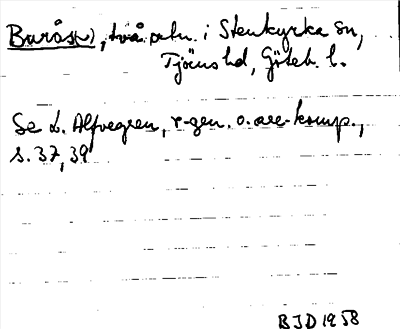 Buråse), två ortn. i Stenkyrka sn,
Tjörns hd, Göteb. l.
Se L. Alfvegren, r-gen. o. are-komp.,
s. 37, 39
BJD 1958